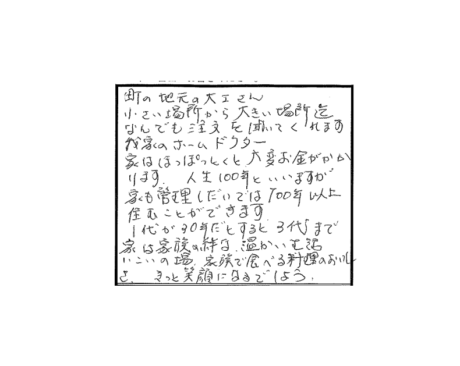 町の地元の大工さん
小さい場所から大きい場所迄
なんでも注文を聞いてくれます
我家のホームドクター
家はほっぽっとくと大変お金がかか
ります。人生100年といいますが
家も管理しだいでは100年以上
住むことができます
1代が30年だとすると3代まで
家は家族の絆、温かい
いこいの場、家族で食べる料理のおいし
さ、きっと笑顔になるでしょう。